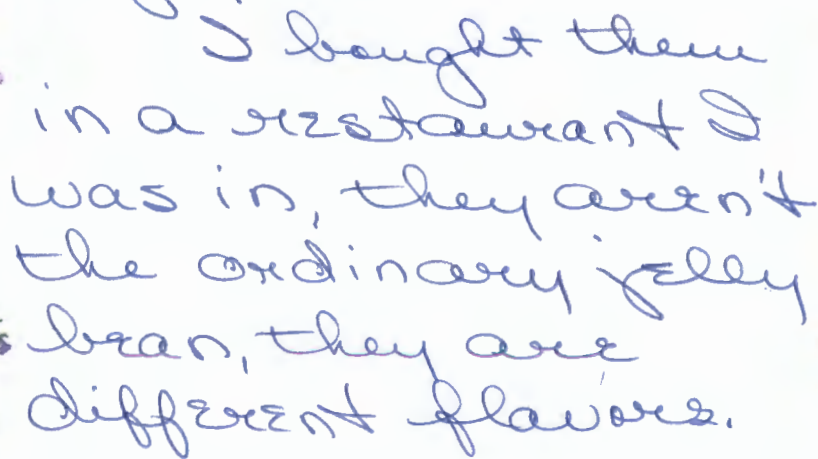 I bought them
in a restaurant I
was in, they aren't
the ordinary jelly
bean, they are
different flavors.